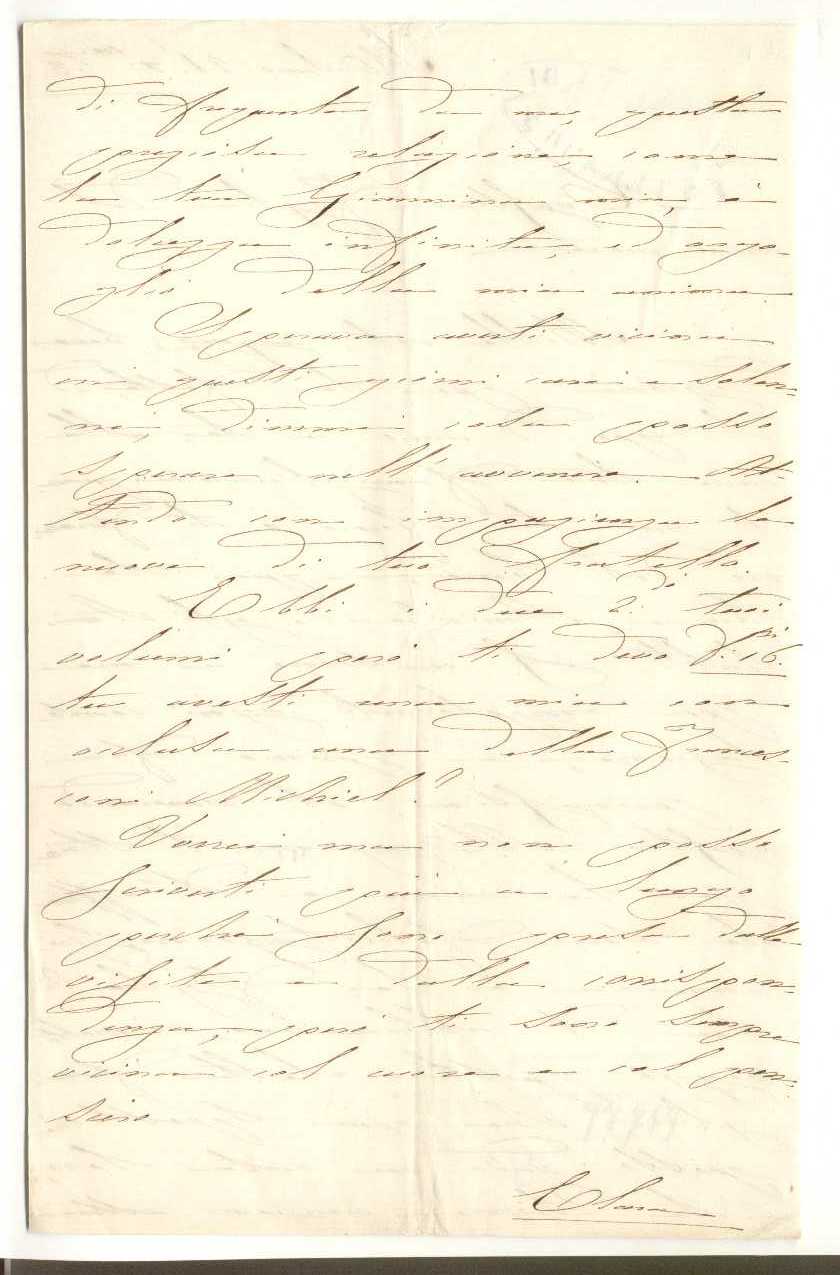 di frequente da me, questa
preziosa relazione, come
la tua Giannina mia, è
dolcezza infinita, ed orgo-
glio della mia anima.
Sperava averti vicina
in questi giorni cari e solen-
ni, dimmi cosa posso
sperare nell'avvenire. At-
tendo con impazienza le
nuove di tuo fratello.
Ebbi i due 2. di tuoi
volumi però ti devo f.ni 16.
tu avesti una mia con
acclusa una della Frances-
coni Michiel?
Vorrei ma non posso
scriverti più a lungo
perché sono presa dalle
visite e dalla corrispon-
denza, però ti sono sempre
vicina col cuore e col pen-
siero
Clara